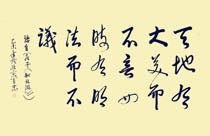 天地有
大美而
不言四
時有明
法而不
議